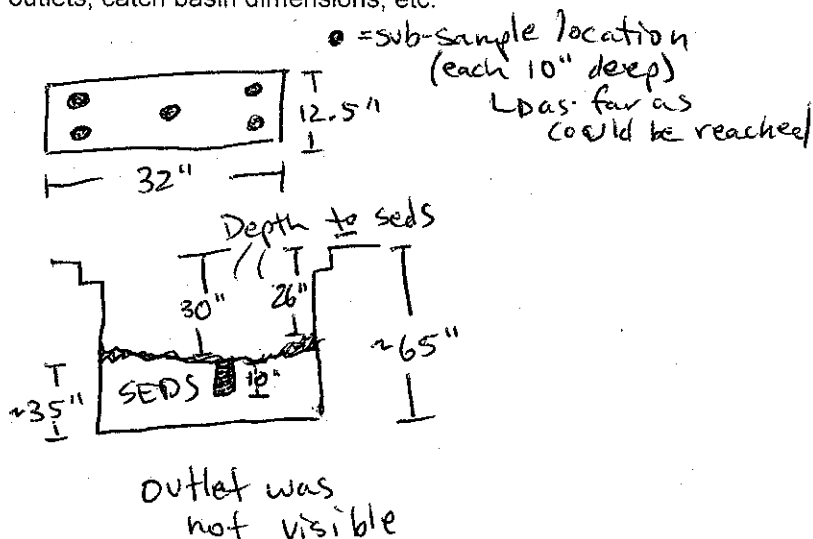 outlets, catch basin dimensions, etc.
● = sub-sample location
(each 10" deep)
↳ as far as
could be reached
12.5"
32"
Depth to seds
30"
26"
~65"
~35"
SEDS
10"
outlet was
not visible